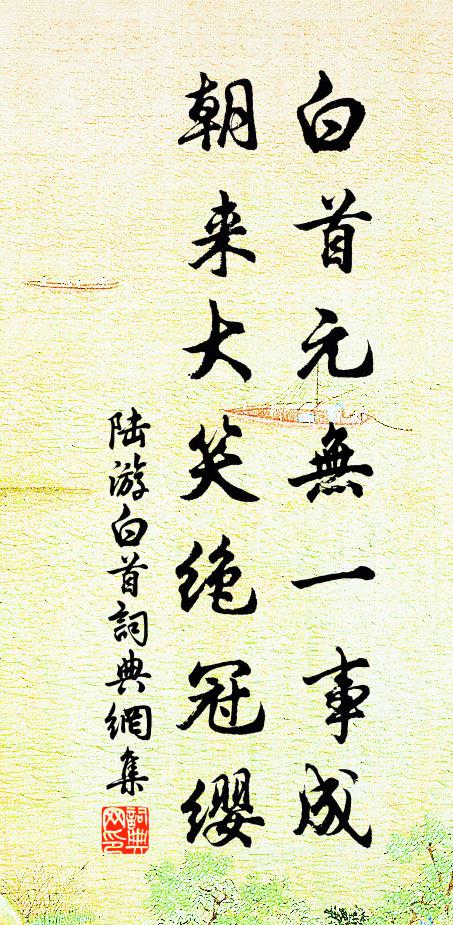 白首元無一事成
朝来大笑绝冠缨
陆游白首詞典網集
詞典网印